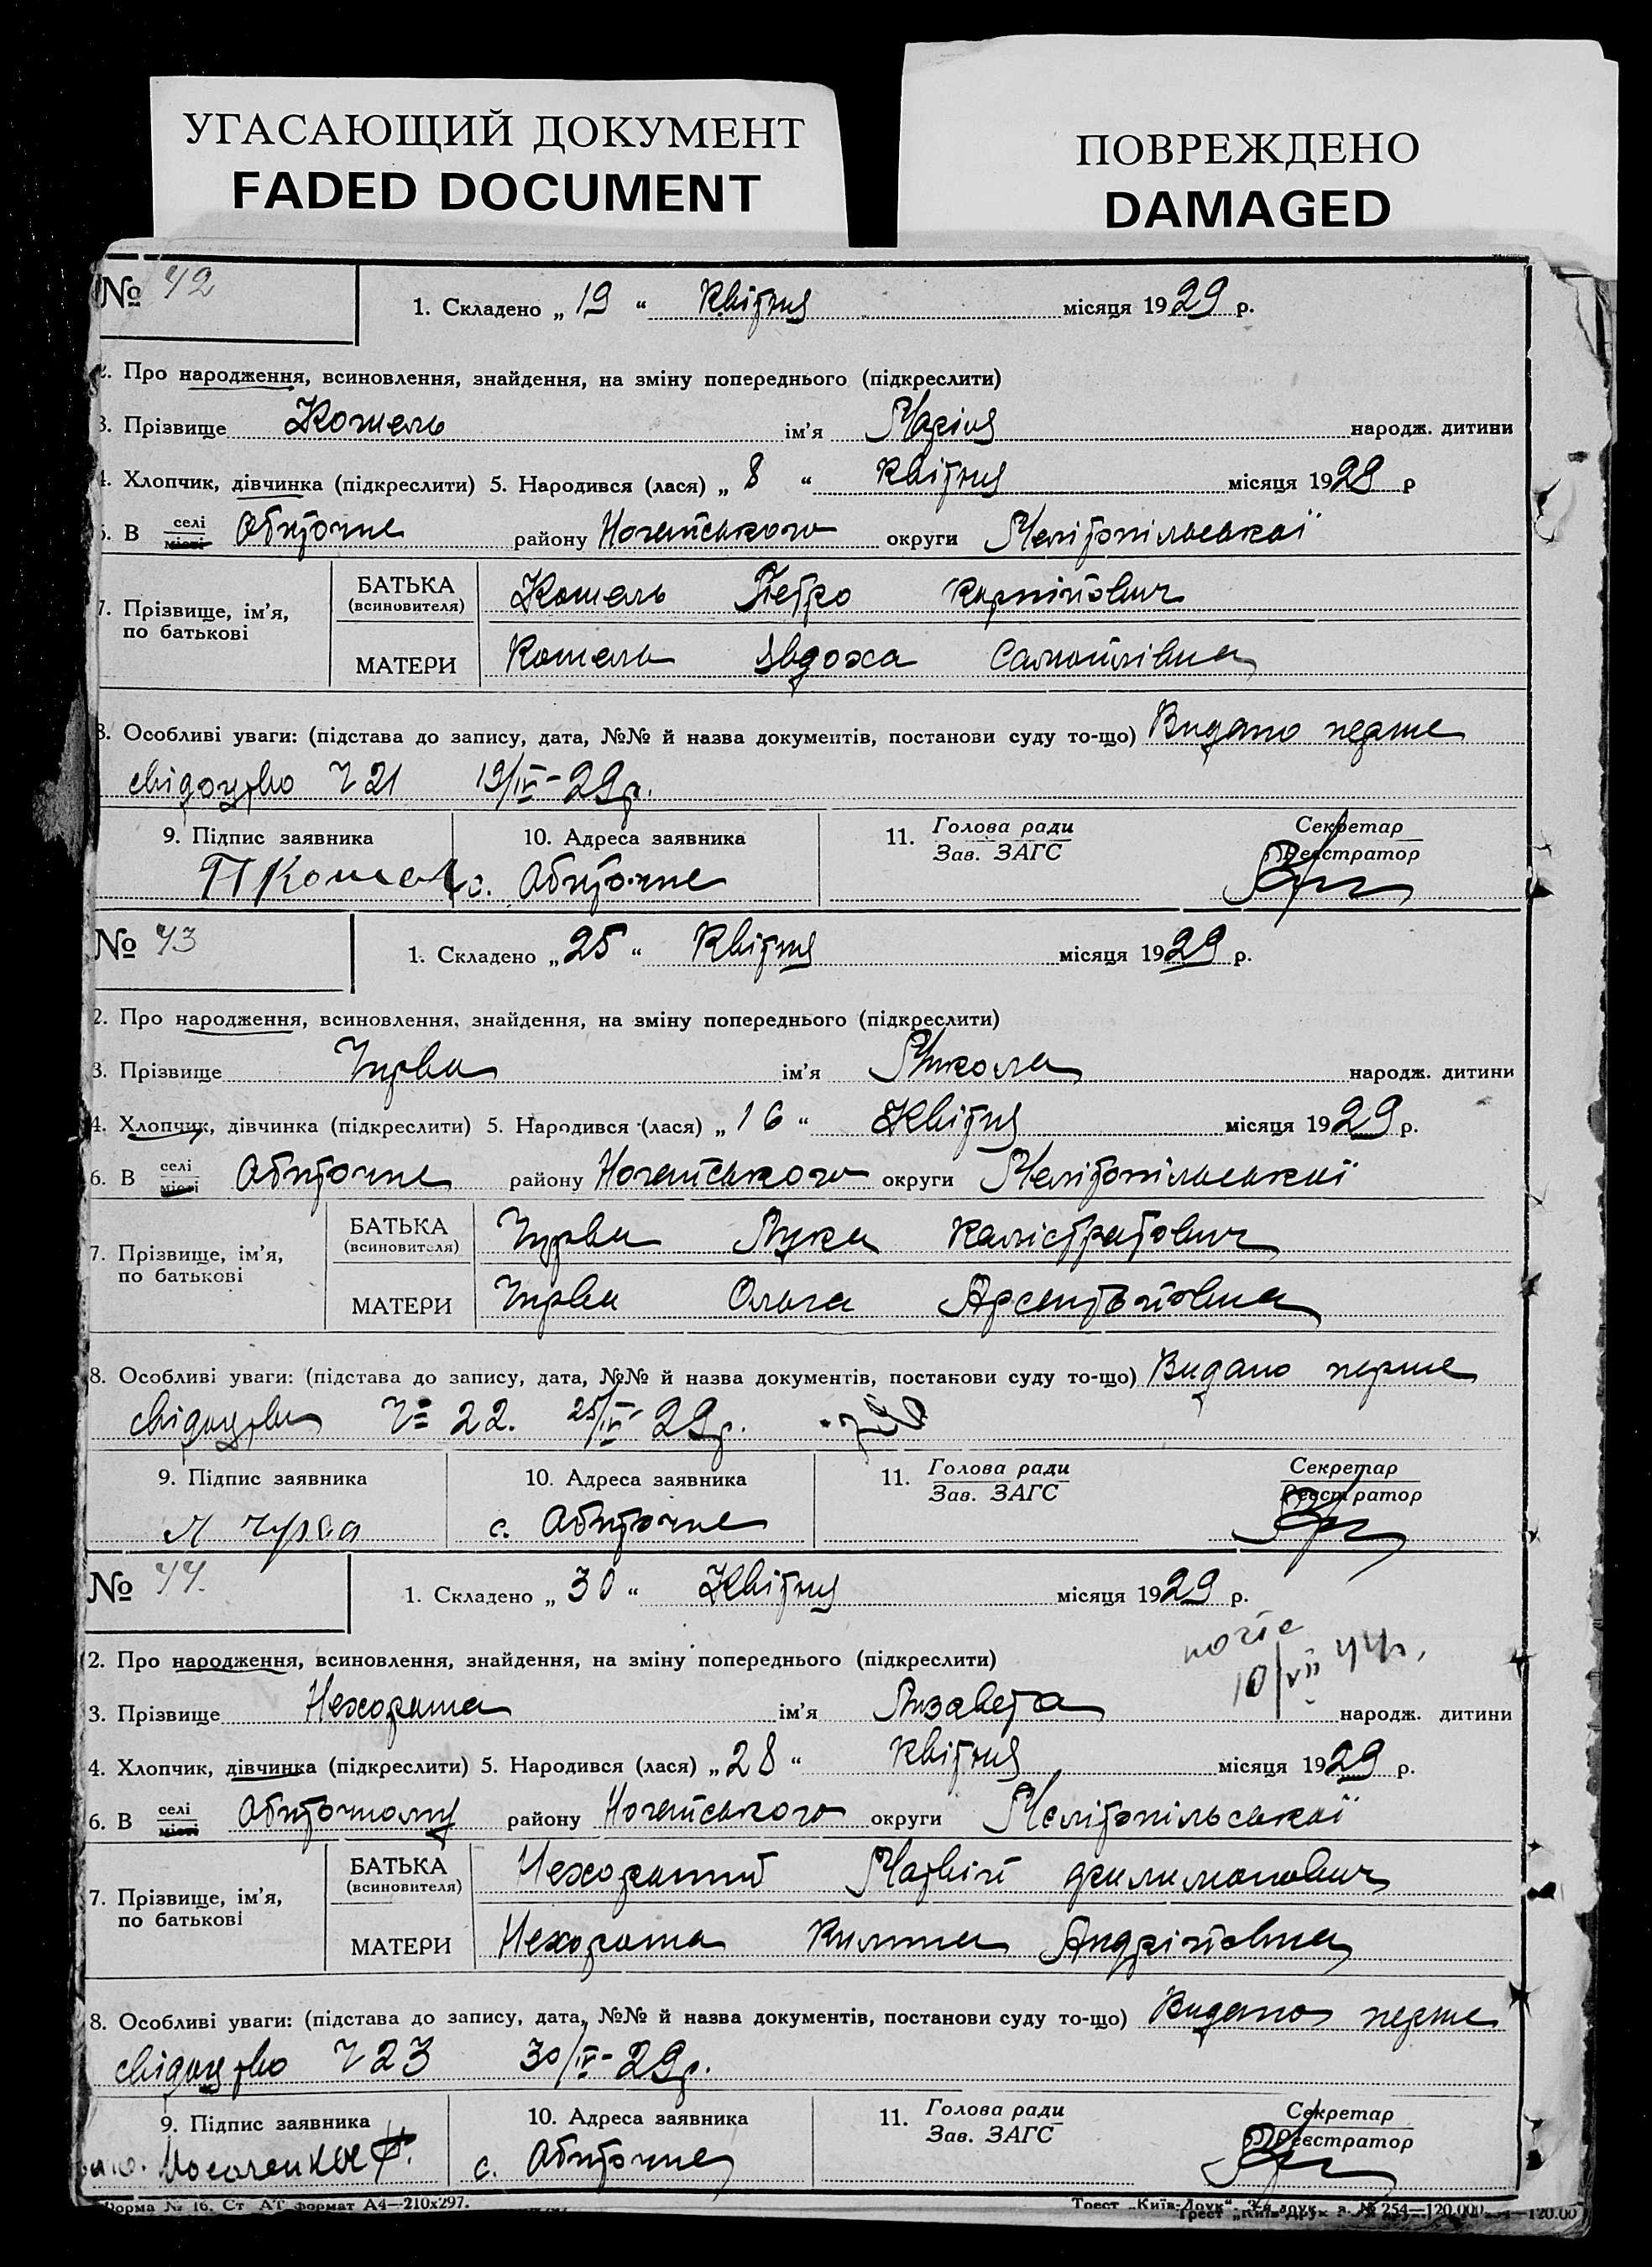 УГАСАЮЩИЙ ДОКУМЕНТ
FADED DOCUMENT
ПОВРЕЖДЕНО
DAMAGED
№ 42
1. Складено „ 19 “ Квітня місяця 1929 р.
2. Про народження, всиновлення, знайдення, на зміну попереднього (підкреслити)
3. Прізвище Кошель ім’я Марія народж. дитини
4. Хлопчик, дівчинка (підкреслити) 5. Народився (лася) „ 8 “ Квітня місяця 1929 р
6. В селі місті Обиточне району Ногайського округи Мелітопільської
7. Прізвище, ім’я, по батькові
БАТЬКА (всиновителя) Кошель Петро Карпійович
МАТЕРИ Кошель Явдоха Самойлівна
8. Особливі уваги: (підстава до запису, дата, №№ й назва документів, постанови суду то-що) Видано перше
свідоцтво Ч 21 19/IV-29р.
9. Підпис заявника 10. Адреса заявника 11. Голова ради Зав. ЗАГС Секретар Реєстратор
П Кошель с. Обиточне
№ 43
1. Складено „ 25 “ Квітня місяця 1929 р.
2. Про народження, всиновлення, знайдення, на зміну попереднього (підкреслити)
3. Прізвище Чурва ім’я Микола народж. дитини
4. Хлопчик, дівчинка (підкреслити) 5. Народився (лася) „ 16 “ Квітня місяця 1929 р.
6. В селі місті Обиточне району Ногайського округи Мелітопільської
7. Прізвище, ім’я, по батькові
БАТЬКА (всиновителя) Чурва Лука Калістратович
МАТЕРИ Чурва Ольга Арсентьївна
8. Особливі уваги: (підстава до запису, дата, №№ й назва документів, постанови суду то-що) Видано перше
свідоцтво Ч= 22. 25/IV-29р.
9. Підпис заявника 10. Адреса заявника 11. Голова ради Зав. ЗАГС Секретар Реєстратор
Л Чурва с. Обиточне
№ 44.
1. Складено „ 30 “ Квітня місяця 1929 р.
10/VII 44р.
2. Про народження, всиновлення, знайдення, на зміну попереднього (підкреслити)
3. Прізвище Нехороша ім’я Лизавета народж. дитини
4. Хлопчик, дівчинка (підкреслити) 5. Народився (лася) „ 28 “ Квітня місяця 1929 р.
6. В селі місті Обиточному району Ногайського округи Мелітопільської
7. Прізвище, ім’я, по батькові
БАТЬКА (всиновителя) Нехороший Матвій Филимонович
МАТЕРИ Нехороша Килина Андріївна
8. Особливі уваги: (підстава до запису, дата, №№ й назва документів, постанови суду то-що) Видано перше
свідоцтво Ч 23 30/IV-29р.
9. Підпис заявника 10. Адреса заявника 11. Голова ради Зав. ЗАГС Секретар Реєстратор
с. Обиточне
Форма № 16. Ст АТ формат А4—210х297. Трест „Київ-Друк“. 3-я друк № 254—120.000